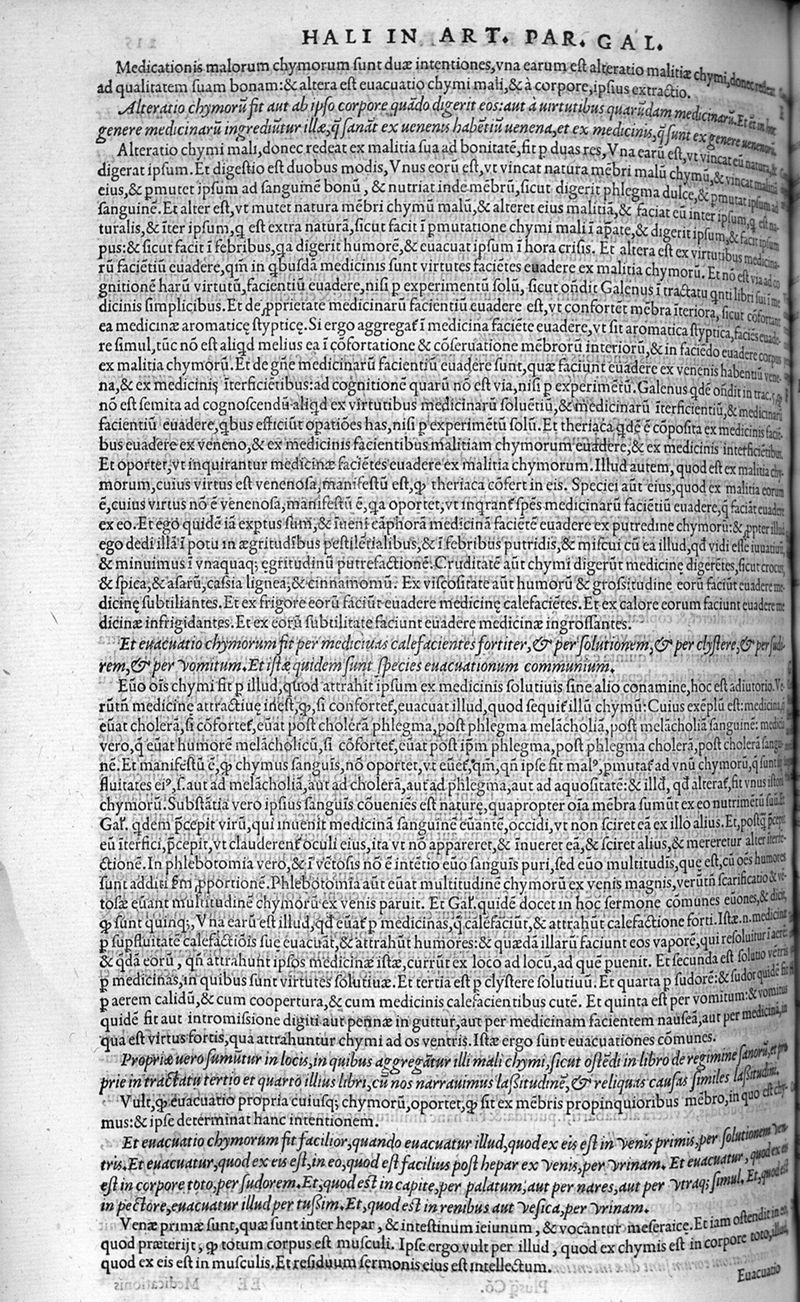 HALI IN ART. PAR. GAL.
Medicationis malorum chymorum sunt duæ intentiones, vna earum est alteratio malitiæ chymi, donec
ad qualitatem suam bonam: & altera est euacuatio chymi mali, & à corpore, ipsius extractio.
Alteratio chymorũ fit aut ab ipso corpore quãdo digerit eos: aut à uirtutibus quarũdam medicinarũ. Et
genere medicinarũ ingrediũtur illæ, q̃ sanãt ex uenenis habẽtiũ uenena, et ex medicinis, q̃ sunt ex genere
Alteratio chymi mali, donec redeat ex malitia sua ad bonitatẽ, fit p duas res, Vna earũ est, vt vincat eũ natura, &
digerat ipsum. Et digestio est duobus modis, Vnus eorũ est, vt vincat natura mẽbri malũ chymũ, & vincat malitiã
eius, & pmutet ipsum ad sanguinẽ bonũ, & nutriat inde mẽbrũ, sicut digerit phlegma dulce, & pmutat ipsum ad
sanguinẽ. Et alter est, vt mutet natura mẽbri chymũ malũ, & alteret eius malitiã, & faciat eũ inter ipsum, q̃ est na-
turalis, & ĩter ipsum, q̃ est extra naturã, sicut facit ĩ pmutatione chymi mali ĩ apate, & digerit ipsum, & facit ipsum
pus: & sicut facit ĩ febribus, qa digerit humorẽ, & euacuat ipsum ĩ hora crisis. Et altera est ex virtutibus medicina-
rũ faciẽtiũ euadere, qm̃ in qbusdã medicinis sunt virtutes faciẽtes euadere ex malitia chymorũ. Et nõ est via ad co
gnitionẽ harũ virtutũ, facientiũ euadere, nisi p experimentũ solũ, sicut oñdit Galenus ĩ tractatu qnti libri sui ĩ me
dicinis simplicibus. Et de pprietate medicinarũ facientiũ euadere est, vt confortet mẽbra ĩteriora, sicut cõfortant
ea medicinæ aromaticę stypticę. Si ergo aggregat̃ ĩ medicina faciẽte euadere, vt sit aromatica styptica, faciẽs euade-
re simul, tũc nõ est aliqd melius ea ĩ cõfortatione & cõseruatione mẽbrorũ interiorũ, & in faciẽdo euadere corpus
ex malitia chymorũ. Et de gñe medicinarũ facientiũ euadere sunt, quæ faciunt euadere ex venenis habentiũ vene-
na, & ex medicinis ĩterficiẽtibus: ad cognitionẽ quarũ nõ est via, nisi p experimẽtũ. Galenus qdẽ oñdit in trac.
nõ est semita ad cognoscendũ aliqd ex virtutibus medicinarũ soluẽtiũ, & medicinarũ ĩterficientiũ, & medicinarũ
facientiũ euadere, qbus efficiũt opatiões has, nisi p experimẽtũ solũ. Et theriaca qdẽ ẽ cõposita ex medicinis faciẽ-
bus euadere ex veneno, & ex medicinis facientibus malitiam chymorum euadere, & ex medicinis interficiẽtibus.
Et oportet, vt inquirantur medicinæ faciẽtes euadere ex malitia chymorum. Illud autem, quod est ex malitia chy-
morum, cuius virtus est venenosa, manifestũ est, qp theriaca cõfert in eis. Speciei aũt eius, quod ex malitia eorum
ẽ, cuius virtus nõ ẽ venenosa, manifestũ ẽ, qa oportet, vt inqrant̃ spẽs medicinarũ faciẽtiũ euadere, q̃ faciãt euadere
ex eo. Et ego quidẽ iã exptus sum, & ĩueni cãphorã medicinã faciẽtẽ euadere ex putredine chymorũ: & ppter illud
ego dedi illã ĩ potu in ægritudĩbus pestilẽtialibus, & ĩ febribus putridis, & miscui cũ ea illud, qd vidi esse iuuatiuũ,
& minuimus ĩ vnaquaq; ęgritudinũ putrefactionẽ. Cruditatẽ aũt chymi digerũt medicinę digerẽtes, sicut crocus,
& spica, & asarũ, cassia lignea, & cinnamomũ. Ex viscositate aũt humorũ & grossitudine eorũ faciũt euadere me-
dicinę subtiliantes. Et ex frigore eorũ faciũt euadere medicinę calefaciẽtes. Et ex calore eorum faciunt euadere me
dicinæ infrigidantes. Et ex eorũ subtilitate faciunt euadere medicinæ ingrossantes.
Et euacuatio chymorum fit per mediciuas calefacientes fortiter, & per solutionem, & per clystere, & per sudo-
rem, & per vomitum. Et istæ quidem sunt species euacuationum communium.
Eũo oĩs chymi fit p illud, quod attrahit ipsum ex medicinis solutiuis sine alio conamine, hoc est adiutorio. Ve-
rũtñ medicinę attractiuę inest, qp, si confortet̃, euacuat illud, quod sequit̃ illũ chymũ: Cuius exẽplũ est: medicina, q̃
eũat cholerã, si cõfortet̃, eũat post cholerã phlegma, post phlegma melãcholiã, post melãcholiã sanguinẽ: medicina
vero, q̃ eũat humorẽ melãcholicũ, si cõfortet̃, eũat post ip̃m phlegma, post phlegma cholerã, post cholerã sangui-
nẽ. Et manifestũ ẽ, qp chymus sanguis, nõ oportet, vt eũet̃, qm̃, qñ ipse fit malꝰ, pmutat̃ ad vnũ chymorũ, q̃ sunt su
fluitates eiꝰ, s. aut ad melãcholiã, aut ad cholerã, aut ad phlegma, aut ad aquositatẽ: & illd, qd alterat̃, fit vnus istorũ
chymorũ. Substãtia vero ipsius sanguĩs cõueniẽs est naturę, quapropter oĩa mẽbra sumũt ex eo nutrimẽtũ suũ. Et
Gal̃. qdem pcepit virũ, qui inuenit medicinã sanguinẽ eũantẽ, occidi, vt non sciret eã ex illo alius. Et, postq̃ pcepit
eũ ĩterfici, pcepit, vt clauderent̃ oculi eius, ita vt nõ appareret, & inueret eã, & sciret alius, & mereretur alter ĩterfe-
ctionẽ. In phlebotomia vero, & ĩ vẽtosis nõ ẽ intẽtio eũo sanguĩs puri, sed eũo multitudis, que est, cũ oẽs humores
sunt additi fm pportionẽ. Phlebotomia aũt eũat multitudinẽ chymorũ ex venis magnis, verũtñ scarificatio & vẽ-
tosæ eũant multitudinẽ chymorũ ex venis paruit. Et Gal̃. quidẽ docet in hoc sermone cõmunes eũones, & dicit,
qp sunt quinq;, Vna earũ est illud, qd eũat̃ p medicinas, q̃ calefaciũt, & attrahũt calefactione forti. Istæ. n. medicinæ
p supfluitatẽ calefactiõis sue euacuãt, & attrahũt humores: & quædã illarũ faciunt eos vaporẽ, qui resoluitur ĩ aere
& qdã eorũ, qñ attrahunt ipsos medicinæ istæ, currũt ex loco ad locũ, ad quẽ puenit. Et secunda est solutio vẽtris
p medicinas, in quibus sunt virtutes solutiuæ. Et tertia est p clystere solutiuũ. Et quarta p sudorẽ: & sudor quidẽ fit
p aerem calidũ, & cum coopertura, & cum medicinis calefacientibus cutẽ. Et quinta est per vomitum: & vomitus
quidẽ fit aut intromissione digiti aut pennæ in guttur, aut per medicinam facientem nauseã, aut per medicinã, in
qua est virtus fortis, qua attrahuntur chymi ad os ventris. Istæ ergo sunt euacuationes cõmunes.
Propriæ uero sumũtur in locis, in quibus aggregãtur illi mali chymi, sicut ostẽdi in libro de regimine sanorũ, et pro
prie in tractatu tertio et quarto illius libri, cũ nos narrauimus laßitudinẽ, & reliquas causas similes laßitudini.
Vult, qp euacuatio propria cuiusq; chymorũ, oportet, qp sit ex mẽbris propinquioribus mẽbro, in quo est chy-
mus: & ipse determinat hanc intentionem.
Et euacuatio chymorum fit facilior, quando euacuatur illud, quod ex eis est in venis primis, per solutionem ven-
tris. Et euacuatur, quod ex eis est, in eo, quod est facilius post hepar ex venis, per vrinam. Et euacuatur, quod ex eis
est in corpore toto, per sudorem. Et, quod est in capite, per palatum, aut per nares, aut per vtraq; simul. Et, quod est
in pectore, euacuatur illud per tußim. Et, quod est in renibus aut vesica, per vrinam.
Venæ primæ sunt, quæ sunt inter hepar, & intestinum ieiunum, & vocantur meseraice. Et iam ostendit in eo,
quod præterijt, qp totum corpus est musculi. Ipse ergo vult per illud, quod ex chymis est in corpore toto, illud,
quod ex eis est in musculis. Et residuum sermonis eius est intellectum.
Euacuatio